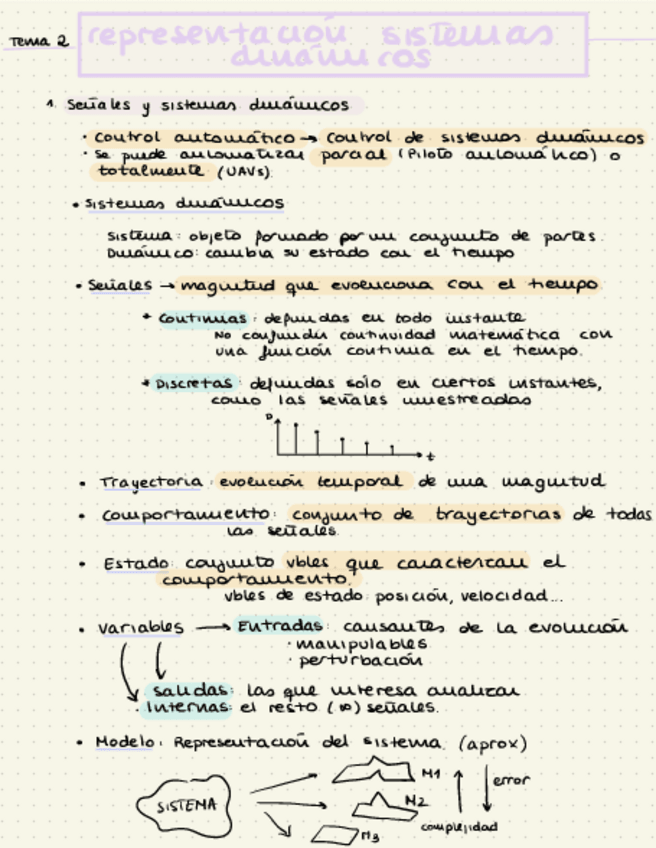 Tema 2
representación sistemas
dinámicos
1. Señales y sistemas dinámicos
· Control automático → Control de sistemas dinámicos
· Se puede automatizar parcial (Piloto automático) o
totalmente (UAVs).
• Sistemas dinámicos
Sistema: objeto formado por un conjunto de partes.
Dinámico: cambia su estado con el tiempo
• Señales → magnitud que evoluciona con el tiempo
* Continuas: definidas en todo instante
No confundir continuidad matemática con
una función continua en el tiempo.
* Discretas: definidas solo en ciertos instantes,
como las señales muestreadas
t
• Trayectoria: evolución temporal de una magnitud
• Comportamiento: conjunto de trayectorias de todas
las señales.
• Estado: conjunto vbles que caracterizan el
comportamiento.
vbles de estado: posición, velocidad...
• Variables → Entradas: causantes de la evolución
· manipulables
· perturbación
Salidas: las que interesa analizar
· Internas: el resto (∞) señales.
• Modelo: Representación del sistema. (aprox)
SISTEMA
M1
M2
M3
error
complejidad